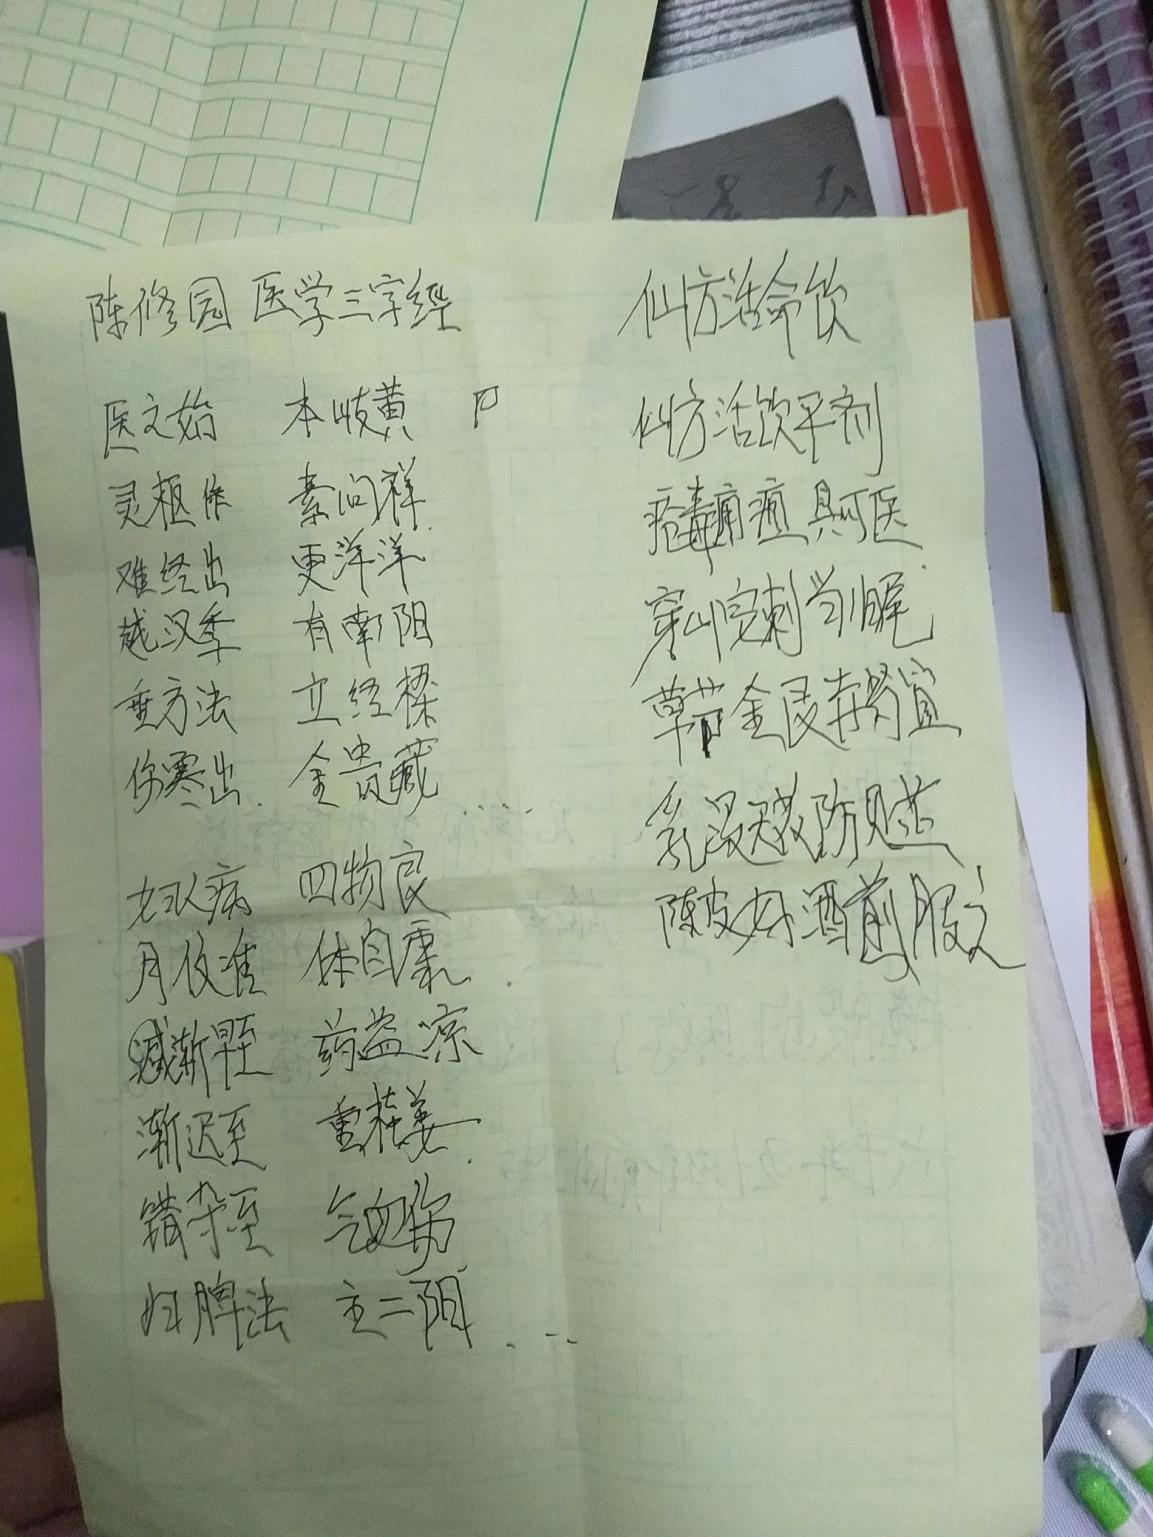 陈修园 医学三字经
医之始 本岐黄
灵枢作 素问详
难经出 更洋洋
越汉季 有南阳
垂方法 立经樑
伤寒出 金贵藏
妇人病 四物良
月信准 体自康
渐早至 药益凉
渐迟至 重桂姜
错杂至 气血伤
归脾法 主二阳
仙方活命饮
仙方活饮平剂
疮毒痈疽具可医
穿山皂刺当归尾
草节金艮赤芍宜
乳没天花防贝芷
陈皮好酒煎服之